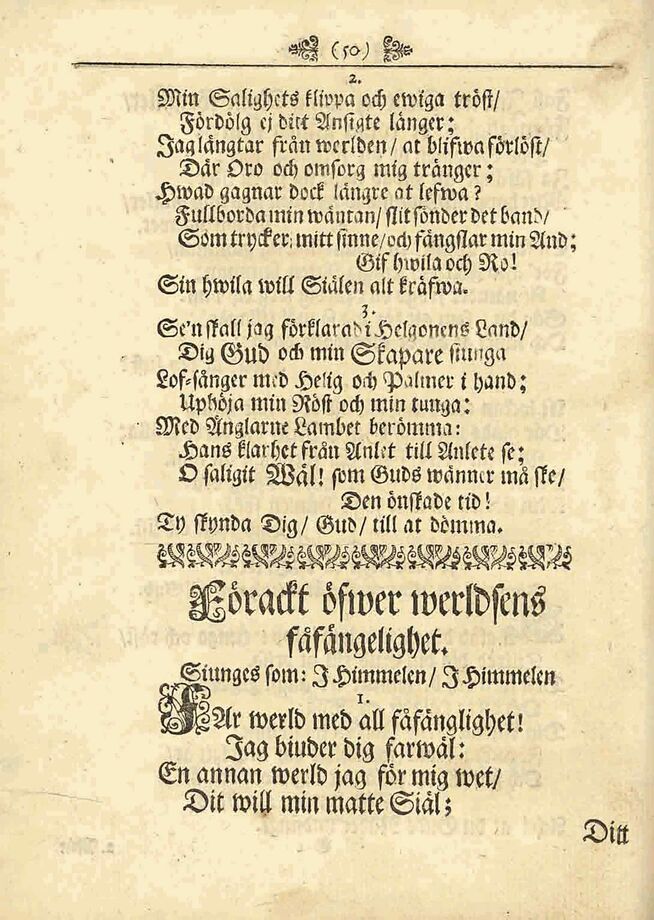 (50)
2.
Min Salighets klippa och ewiga tröst/
Fördölg ej ditt Ansigte länger;
Jag längtar från werlden/ at blifwa förlöst/
Där Oro och omsorg mig tränger;
Hwad gagnar dock längre at lefwa?
Fullborda min wäntan/ slit sönder det band/
Som trycker; mitt sinne/ och fängslar min And;
Gif hwila och Ro!
Sin hwila will Siälen alt kräfwa.
3.
Se'n skall jag förklarad i Helgonens Land/
Dig Gud och min Skapare siunga
Lof-sånger med Helig och Palmer i hand;
Uphöja min Röst och min tunga:
Med Änglarne Lambet berömma:
Hans klarhet från Anlet till Anlete se;
O saligit Wäl! som Guds wänner må ske/
Den önskade tid!
Ty skynda Dig/ Gud/ till at dömma.
Förackt öfwer werldsens
fåfängelighet.
Siunges som: I Himmelen/ I Himmelen
1.
FAr werld med all fåfänglighet!
Jag biuder dig farwäl:
En annan werld jag för mig wet/
Dit will min matte Siäl;
Ditt